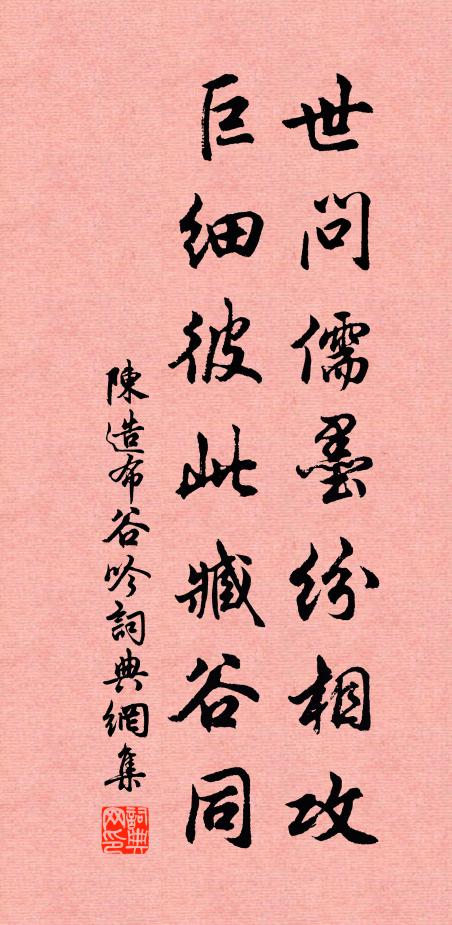 世問儒墨紛相攻
巨細彼此臧谷同
陳造布谷吟詞典網集
詞典网印